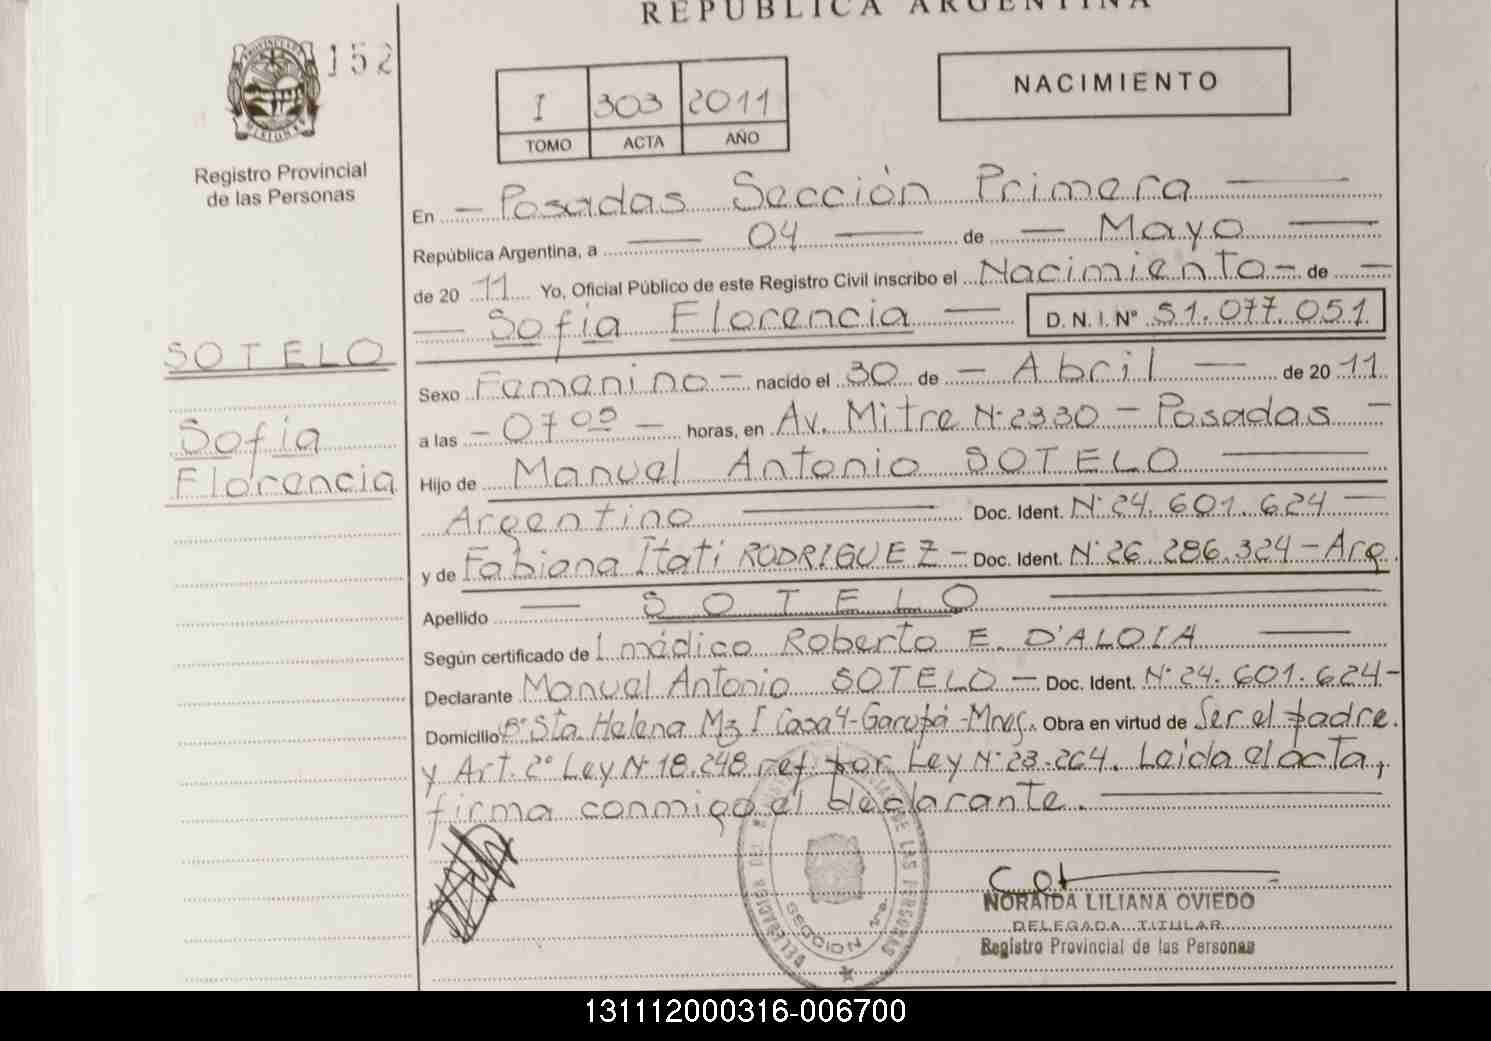 REPÚBLICA ARGENTINA
152
Registro Provincial
de las Personas
I 303 2011
TOMO ACTA AÑO
NACIMIENTO
En — Posadas Sección Primera —
República Argentina, a — 04 — de — Mayo —
de 20 11 Yo, Oficial Público de este Registro Civil inscribo el Nacimiento — de —
— Sofía Florencia — D. N. I. Nº 51.077.051
SOTELO
Sofía
Florencia
Sexo Femenino — nacido el 30 de — Abril — de 20 11
a las — 07 00 — horas, en Av. Mitre N° 2330 — Posadas —
Hijo de Manuel Antonio SOTELO —
Argentino — Doc. Ident. N° 24.601.624 —
y de Fabiana Itatí RODRIGUEZ — Doc. Ident. N° 26.286.324 — Arg.
Apellido — SOTELO —
Según certificado de l médico Roberto E. D'ALOIA —
Declarante Manuel Antonio SOTELO — Doc. Ident. N° 24.601.624 —
Domicilio B° Sta Helena Mz I Casa 4 - Garupá - Mnes. Obra en virtud de Ser el padre
y Art. 2° Ley N° 18.248 ref. por Ley N° 23.264. Leída el acta,
firma conmigo el declarante. —
DELEGACION DE LAS PERSONAS
SECCION 1ra.
NORAIDA LILIANA OVIEDO
DELEGADA TITULAR
Registro Provincial de las Personas
131112000316-006700